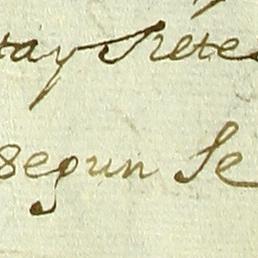 tay Siete
segun Se